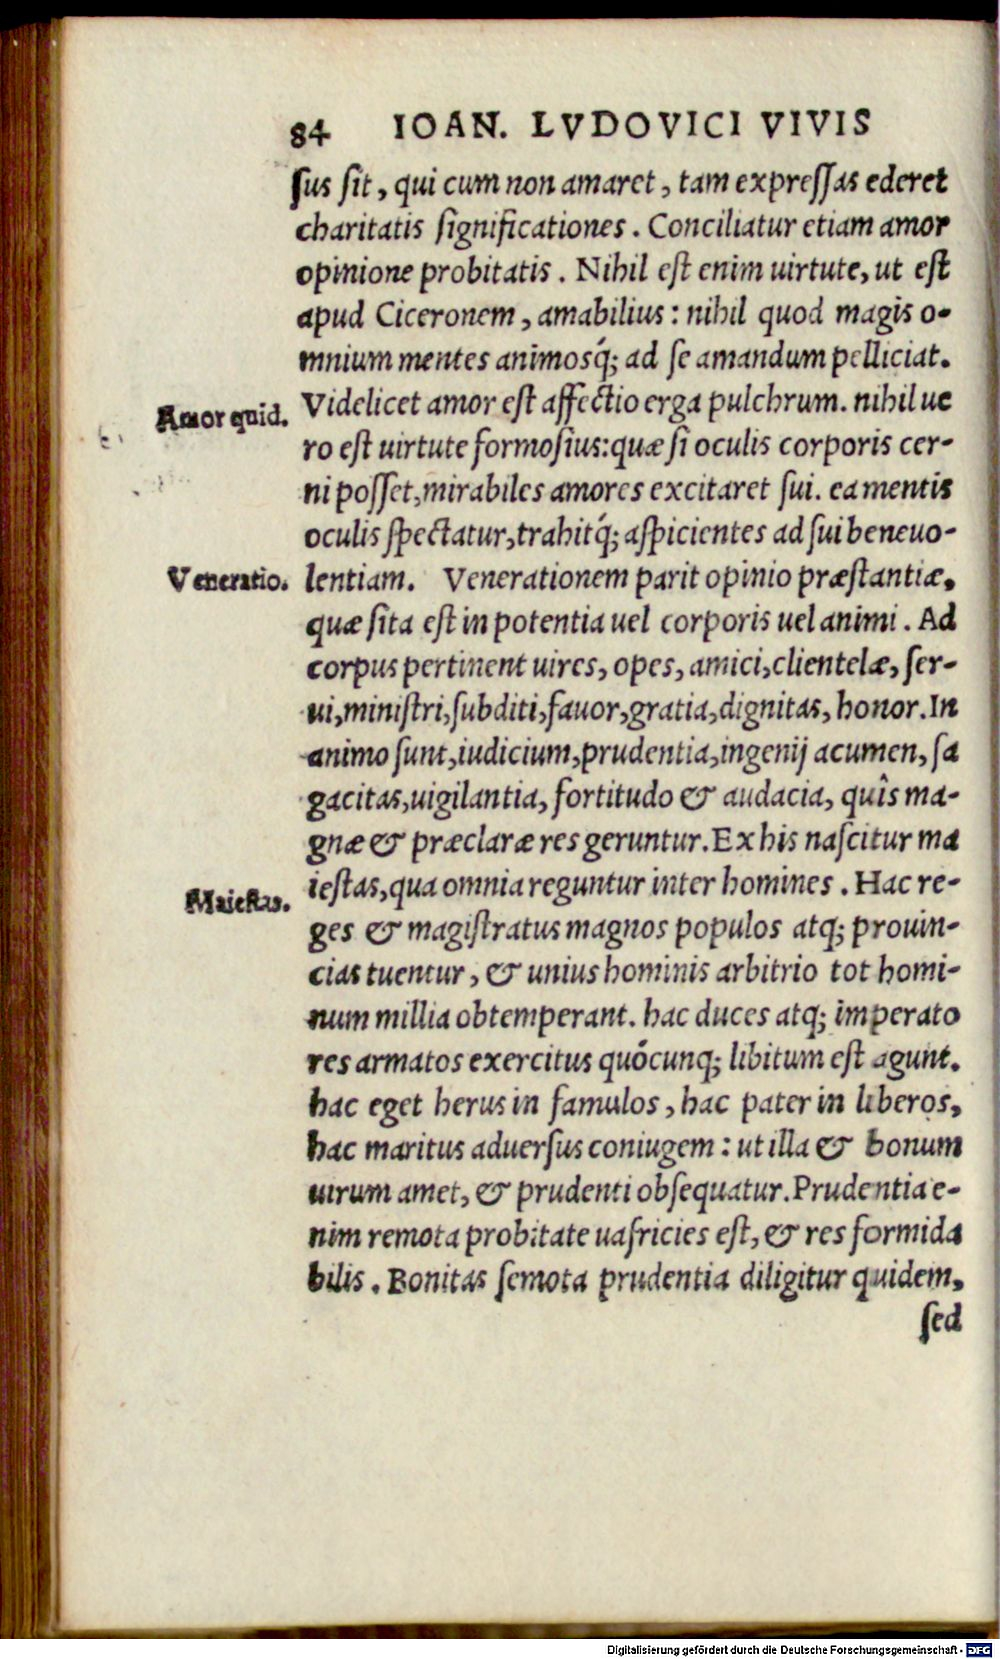 84 IOAN. LVDOVICI VIVIS
ſus ſit, qui cum non amaret, tam expreſſas ederet
charitatis ſignificationes. Conciliatur etiam amor
opinione probitatis. Nihil eſt enim uirtute, ut eſt
apud Ciceronem, amabilius: nihil quod magis o-
mnium mentes animosq́; ad ſe amandum pelliciat.
Amor quid. Videlicet amor eſt affectio erga pulchrum. nihil ue
ro eſt uirtute formoſius: quæ ſi oculis corporis cer-
ni poſſet, mirabiles amores excitaret ſui. ea mentis
oculis ſpectatur, trahitq́; aſpicientes ad ſui beneuo-
Veneratio. lentiam. Venerationem parit opinio præſtantiæ,
quæ ſita eſt in potentia uel corporis uel animi. Ad
corpus pertinent uires, opes, amici, clientelæ, ſer-
ui, miniſtri, ſubditi, fauor, gratia, dignitas, honor. In
animo ſunt, iudicium, prudentia, ingenij acumen, ſa
gacitas, uigilantia, fortitudo & audacia, quîs ma-
gnæ & præclaræ res geruntur. Ex his naſcitur ma
Maieſtas. ieſtas, qua omnia reguntur inter homines. Hac re-
ges & magiſtratus magnos populos atq; prouin-
cias tuentur, & unius hominis arbitrio tot homi-
num millia obtemperant. hac duces atq; imperato
res armatos exercitus quócunq; libitum eſt agunt.
hac eget herus in famulos, hac pater in liberos,
hac maritus aduerſus coniugem: ut illa & bonum
uirum amet, & prudenti obſequatur. Prudentia e-
nim remota probitate uafricies eſt, & res formida
bilis. Bonitas ſemota prudentia diligitur quidem,
ſed
Digitalisierung gefördert durch die Deutsche Forschungsgemeinschaft - DFG